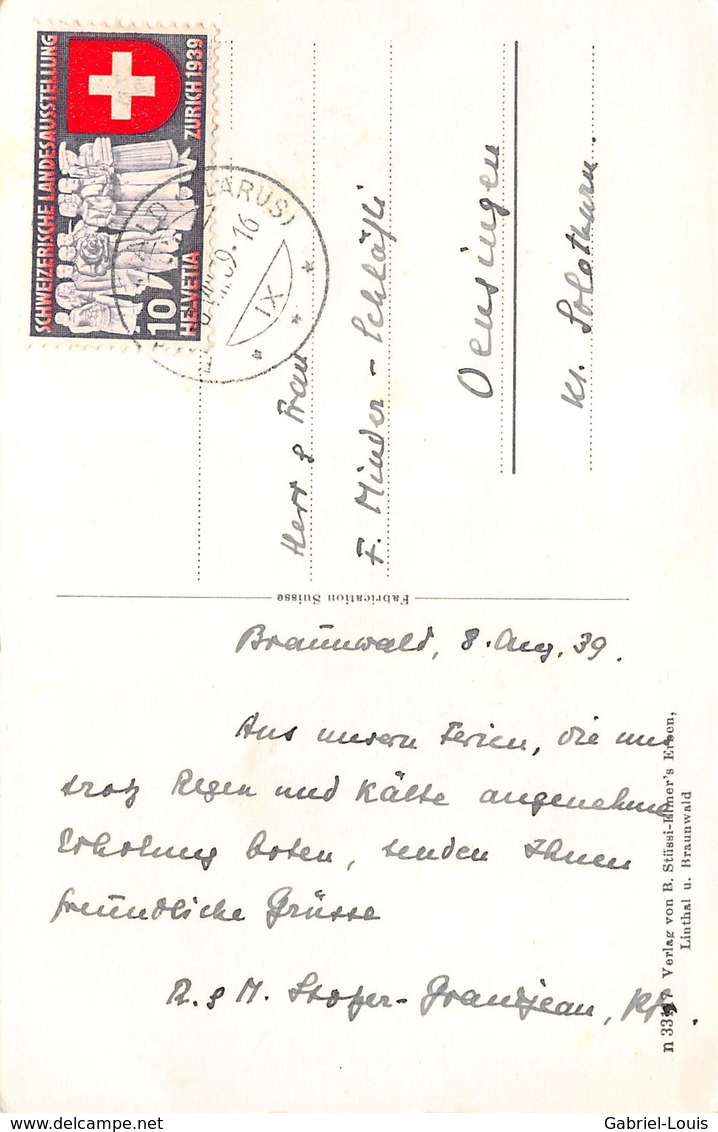 SCHWEIZERISCHE LANDESAUSSTELLUNG
ZÜRICH 1939
10
HELVETIA
WALD (GLARUS)
VIII.39.16
IX
Herr & Frau
F. Minder - Schläfli
Oensingen
Kt. Solothurn.
Fabrication Suisse
Braunwald, 8. Aug. 39.
Aus unsern Ferien, die uns
trotz Regen und Kälte angenehme
Erholung boten, senden Ihnen
freundliche Grüsse
R. & M. Stofer-Grandjean, Pfr.
Verlag von B. Stüssi-Elmer's Erben,
Linthal u. Braunwald
Gabriel-Louis